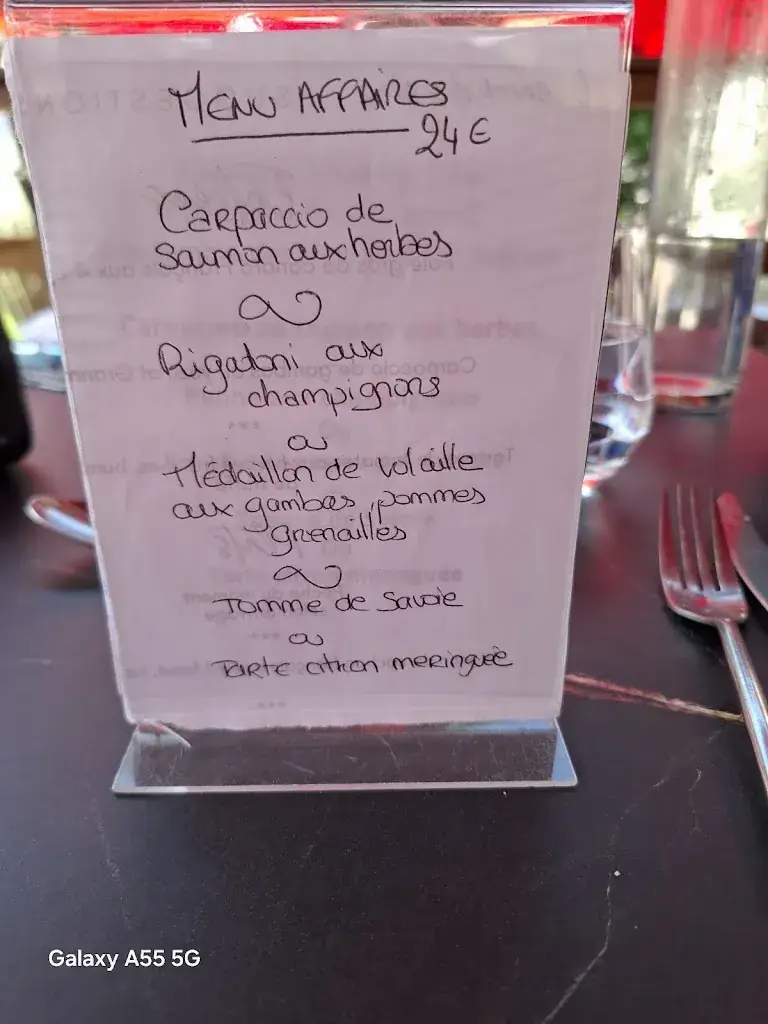 MENU AFFAIRES
24 €
Carpaccio de
saumon aux herbes
Rigatoni aux
champignons
ou
Médaillon de volaille
aux gambas, pommes
grenailles
Tomme de Savoie
ou
Tarte citron meringuée
Galaxy A55 5G